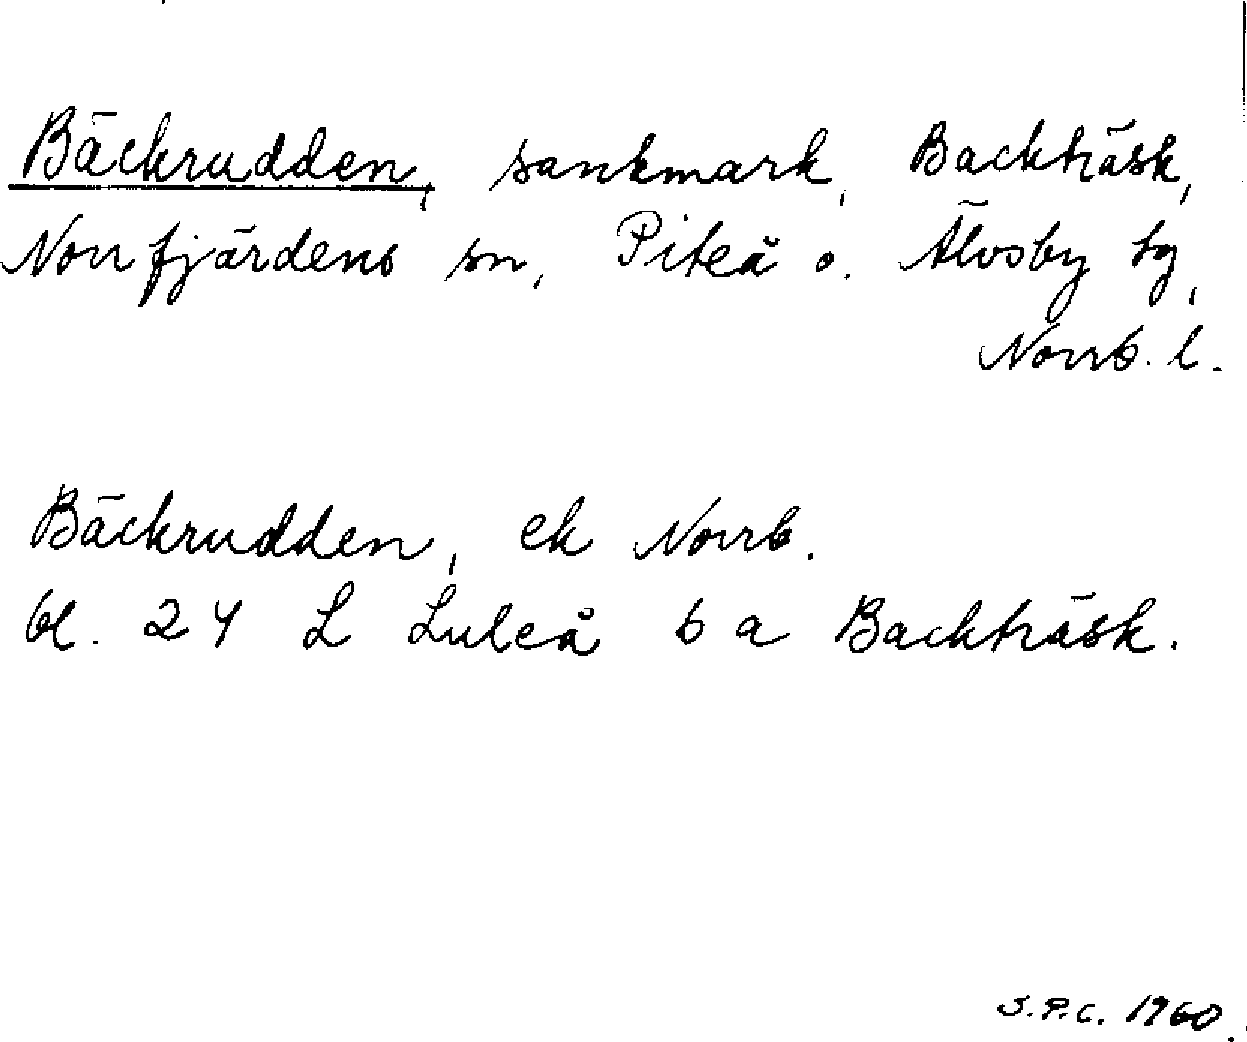 Bäckrudden, sankmark, Backträsk,
Norrfjärdens sn, Piteå o. Älvsby tg,
Norrb. l.
Bäckrudden, ek Norrb.
bl. 24 L Luleå 6 a Backträsk.
S.P.C. 1960.